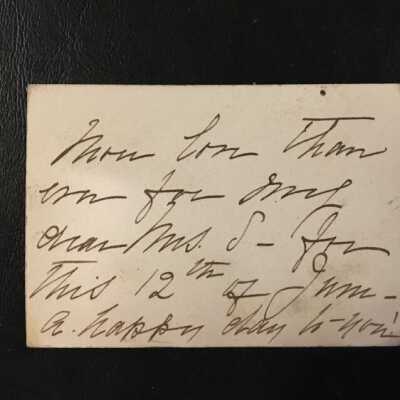 More love than
ever for my
dear Mrs. S - for
this 12th of June -
A happy day to you!